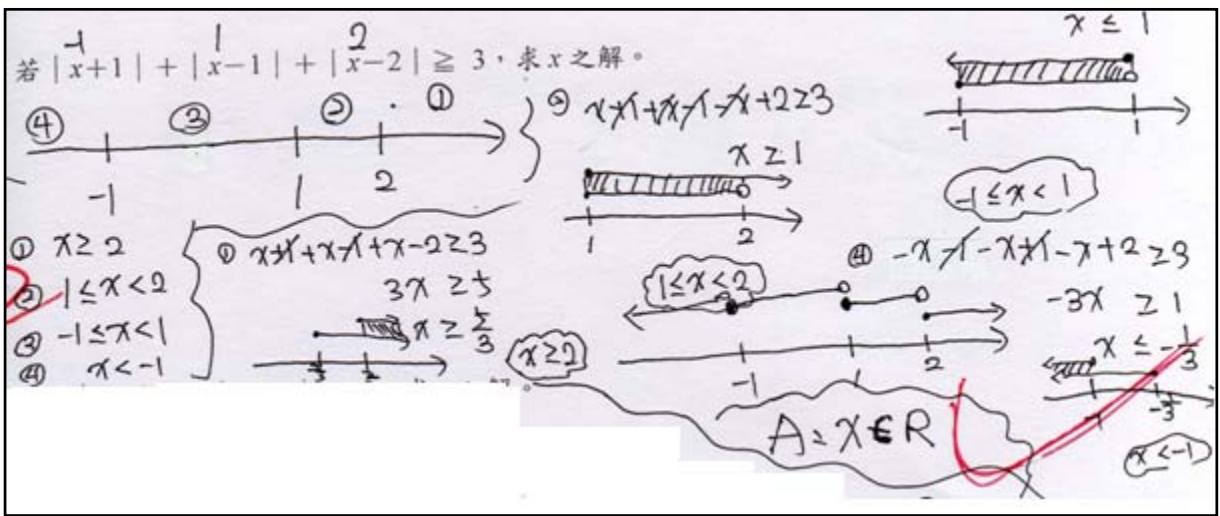 若 | x+1 | + | x-1 | + | x-2 | ≧ 3，求 x 之解。
-1 1 2
④ ③ ② ①
-1 1 2
① x ≥ 2
② 1 ≤ x < 2
③ -1 ≤ x < 1
④ x < -1
① x+1+x-1+x-2 ≥ 3
3x ≥ 5
x ≥ 5/3
x ≥ 2
② x+1+x-1-x+2 ≥ 3
x ≥ 1
1 2
1 ≤ x < 2
x ≤ 1
-1 1
-1 ≤ x < 1
④ -x-1-x+1-x+2 ≥ 3
-3x ≥ 1
x ≤ -1/3
-1 -1/3
x < -1
-1 1 2
A: x ∈ R